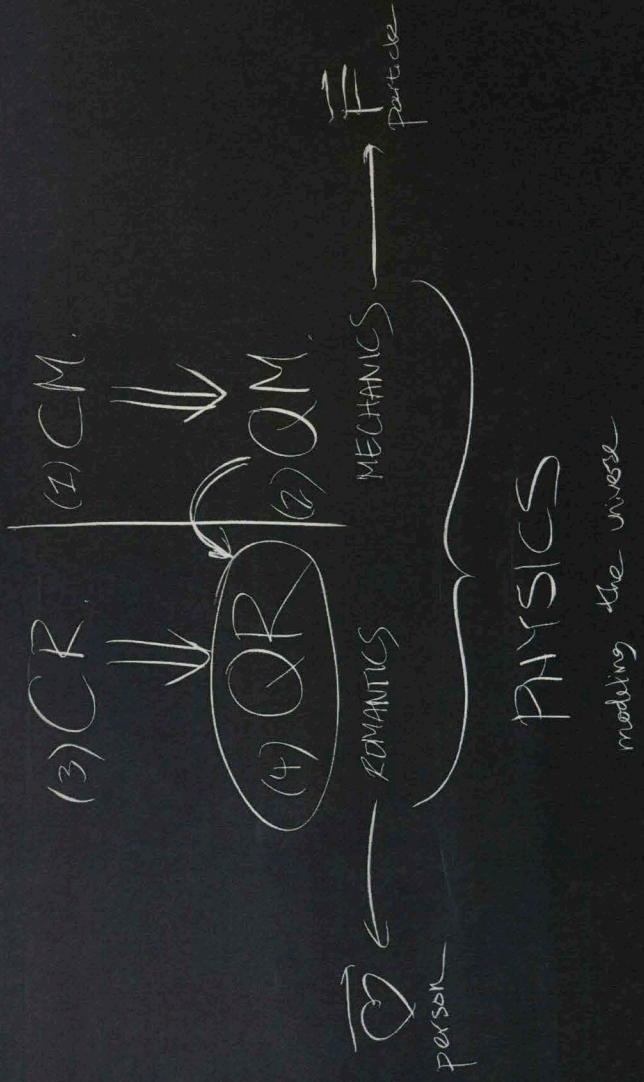 (3) CR. (1) CM.
(4) QR (2) QM.
♡ ROMANTICS MECHANICS F
person particle
PHYSICS
modeling the universe